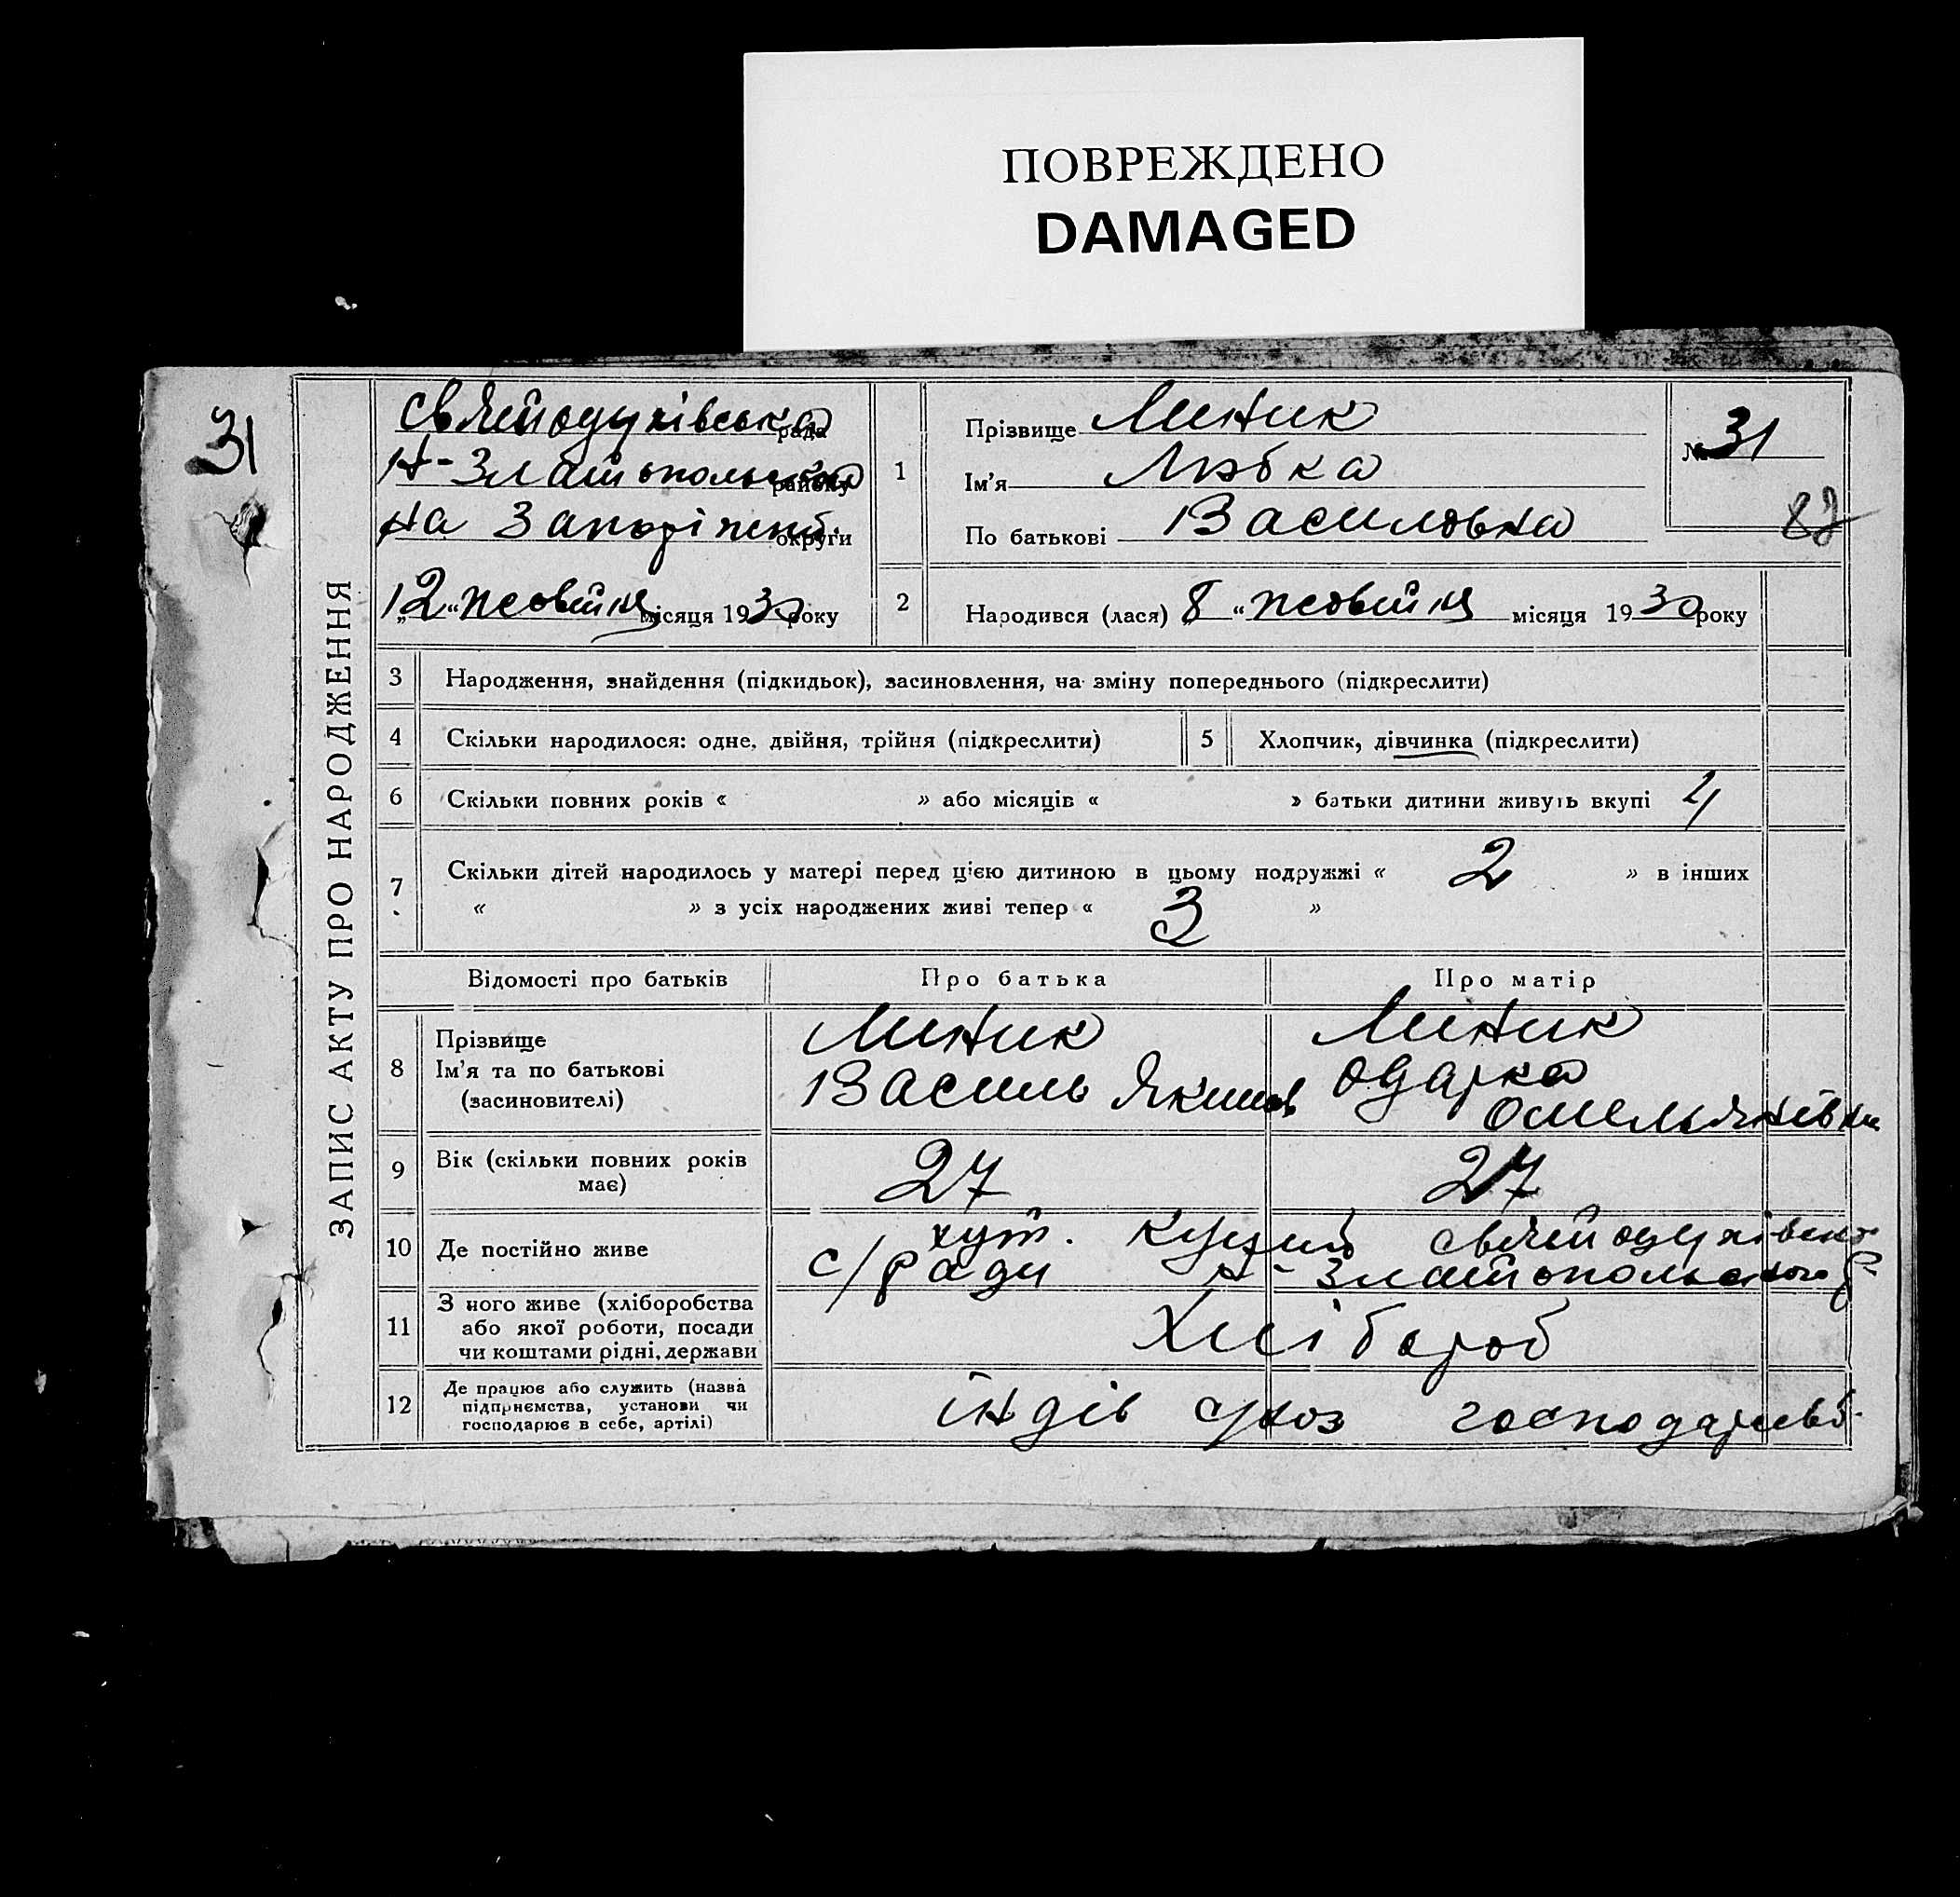 ПОВРЕЖДЕНО
DAMAGED
31
ЗАПИС АКТУ ПРО НАРОДЖЕННЯ
Святодухівська рада
Н-Златопольськ району
на Запоріжчб. округи
„12“ жовтня місяця 1930 року
1
Прізвище Линик
Ім'я Любка
По батькові Василовна
№ 31
82
2
Народився (лася) „8“ жовтня місяця 1930 року
3 Народження, знайдення (підкидьок), засиновлення, на зміну попереднього (підкреслити)
4 Скільки народилося: одне, двійня, трійня (підкреслити)
5 Хлопчик, дівчинка (підкреслити)
6 Скільки повних років « » або місяців « » батьки дитини живуть вкупі 4
7 Скільки дітей народилось у матері перед цією дитиною в цьому подружжі « 2 » в інших
« » з усіх народжених живі тепер « 3 »
Відомості про батьків Про батька Про матір
8
Прізвище
Ім'я та по батькові
(засиновителі)
Линик
Василь Якимов
Линик
Одарка
Омельянівна
9 Вік (скільки повних років
має)
27
27
10 Де постійно живе
хут. Куций Святодухівсько
с/ради Н-Златопольского р.
11 З ного живе (хліборобства
або якої роботи, посади
чи коштами рідні, держави
Хлібороб
12 Де працює або служить (назва
підприємства, установи чи
господарює в себе, артілі)
індів господарств.